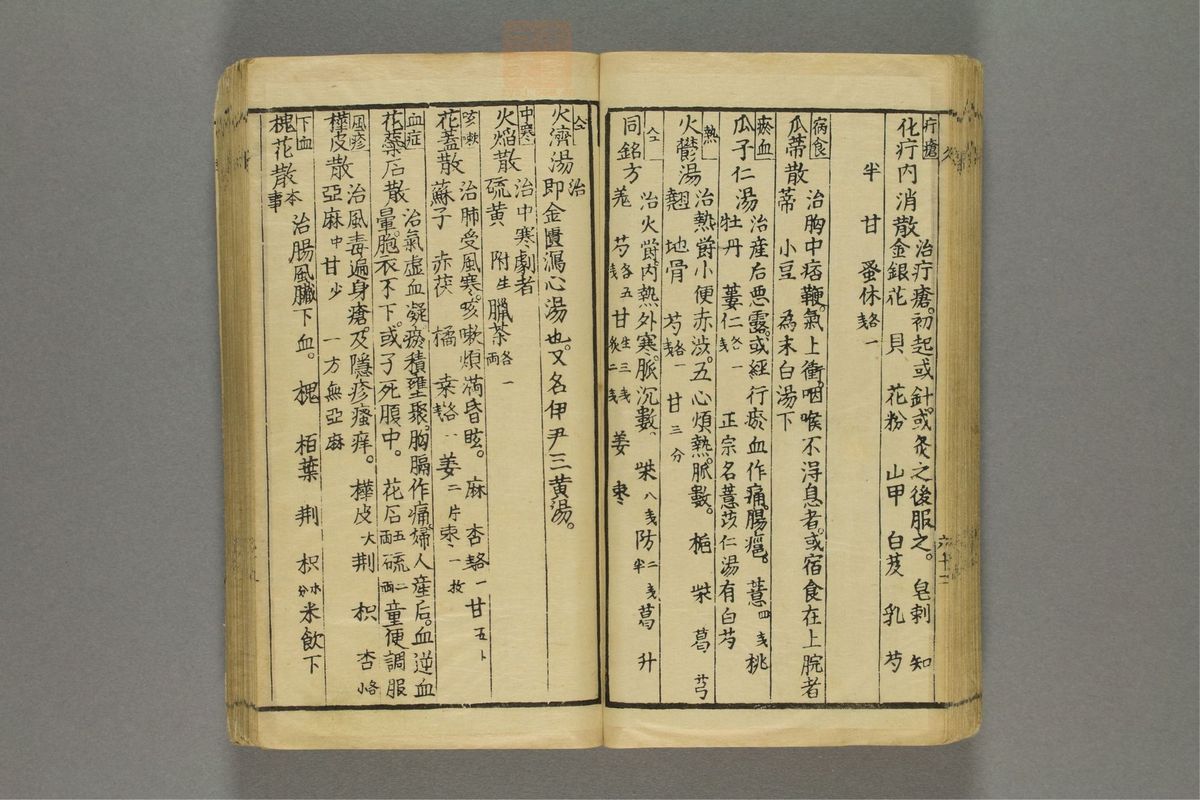 疔瘡
化疔内消散 治疔瘡。初起或針。或灸之後服之。 皂刺 知
金銀花 貝 花粉 山甲 白芨 乳 芍
半 甘 蚤休 各一戋
瓜蒂散 治胸中痞鞕。氣上衝。咽喉不淂息者。或宿食在上脘者
蒂 小豆 為末白湯下
瘀血
瓜子仁湯 治産后悪露。或経行瘀血作痛。腸癰。 薏四戋 桃
牡丹 蔞仁各一戋 正宗名薏苡仁湯有白芍
熱
火鬱湯 治熱欝小便赤渋。五心煩熱。脈數。 栀 柴 葛 芎
翹 地骨 芍各一戋 甘三分
仝
同銘方 治火欝。内熱外寒。脈沉數、 柴八戋 防二戋半 葛 升
羌 芍各五戋 甘生三戋炙二戋 姜 枣
仝
火濟湯 治
即金匱瀉心湯也。又名伊尹三黄湯。
中寒
火焰散 治中寒劇者
硫黄 附生 臘茶各一両
咳嗽
花蓋散 治肺受風寒。咳嗽煩満昏眩。 麻 杏各一戋 甘五卜
蘇子 赤茯 橘 桒各一戋 姜二片 枣一枚
血症
花蘂石散 治氣虚血凝瘀積壅聚。胸膈作痛。婦人産后。血逆血
暈。胞衣不下。或子死腹中。 花石五両 硫二両 童便調服
風疹
樺皮散 治風毒遍身瘡。及隠疹瘙痒。 樺皮大 荆 枳 杏各小
亞麻中 甘少 一方無亞麻
下血
槐花散 本事 治腸風臓下血。 槐 栢葉 荆 枳 水分 米飲下